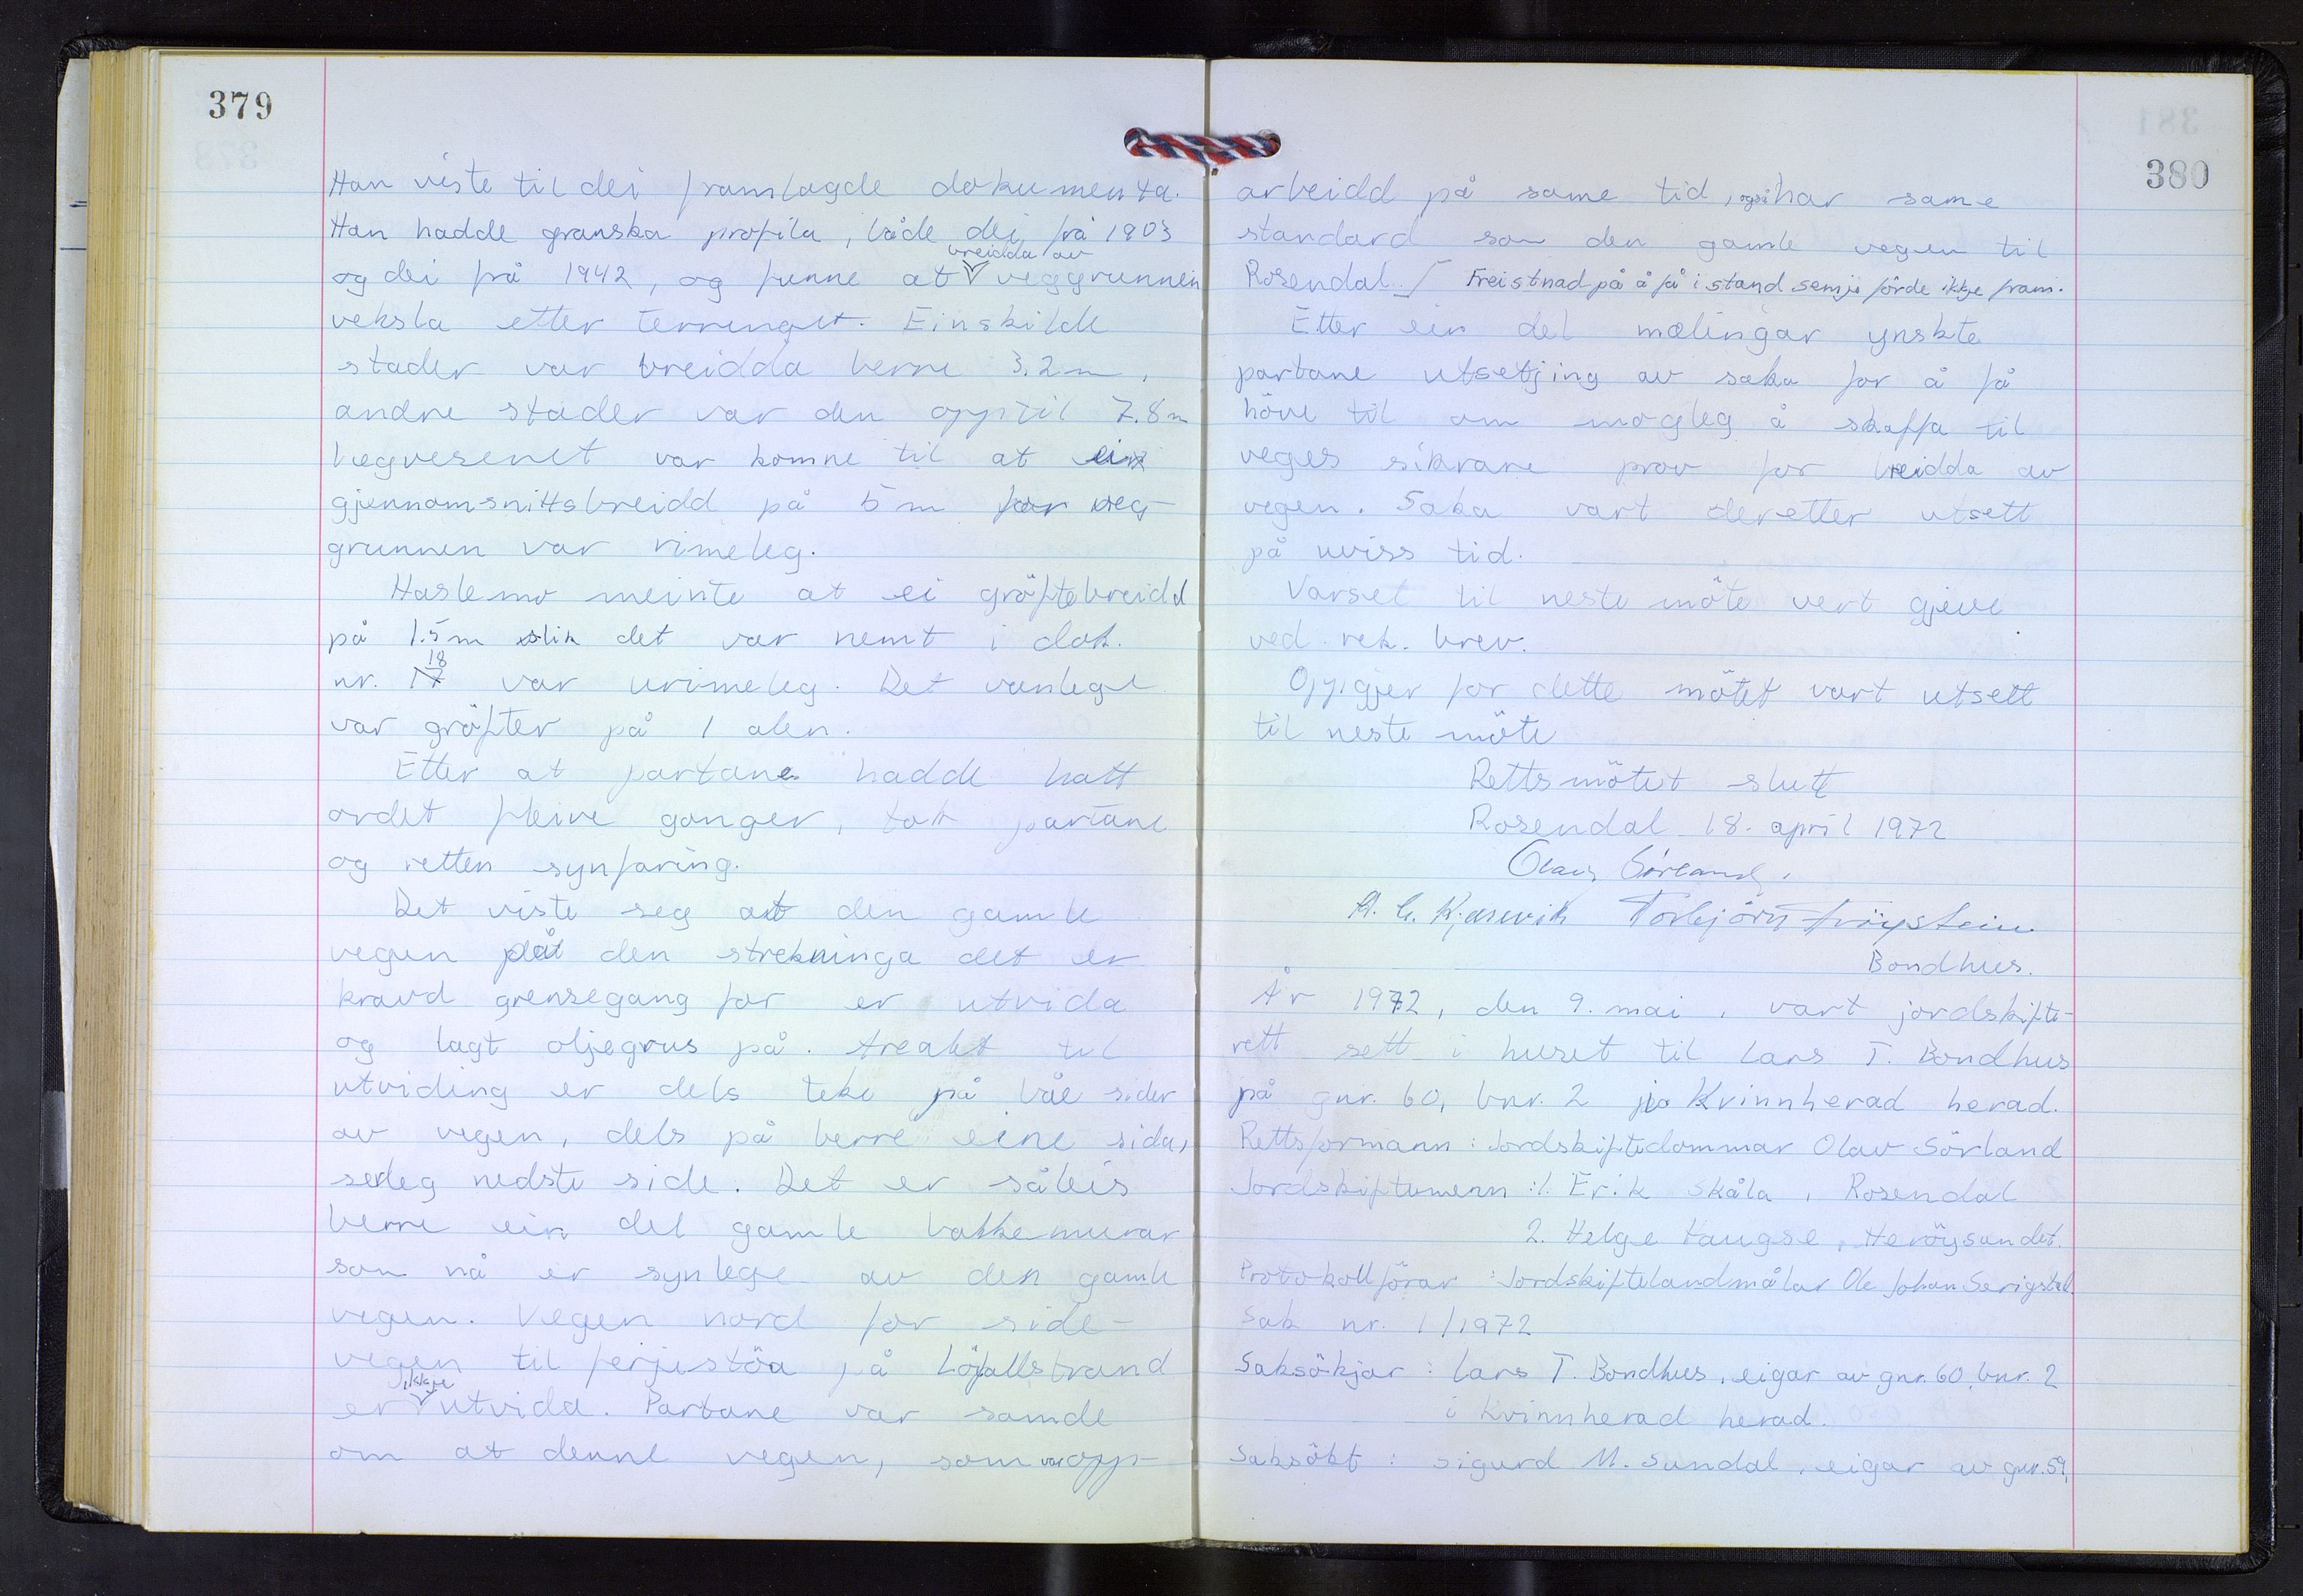 379
Han viste til dei framlagde dokumenta.
Han hadde granska profila, både dei frå 1903
breidda av
og dei frå 1942, og funne at veggrunnen
veksla etter terrenget. Einskilde
stader var breidda berre 3.2 m,
andre stader var den opptil 7.8 m
Vegvesenet var komne til at ein
gjennomsnittsbreidd på 5 m for veg-
grunnen var rimeleg.
Haslemo meinte at ei gröftebreidd
på 1.5 m slik det var nemt i dok.
18
nr. 17 var urimeleg. Det vanlege
var gröfter på 1 alen.
Etter at partane hadde hatt
ordet fleire gonger, tok partane
og retten synfaring.
Det viste seg at den gamle
vegen på den strekninga det er
kravd grensegang for er utvida
og lagt oljegrus på. Arealet til
utviding er dels teke på båe sider
av vegen, dels på berre eine sida,
serleg nedste side. Det er såleis
berre ein del gamle bakkemurar
som nå er synlege av den gamle
vegen. Vegen nord for side-
vegen til ferjestöa på Löfallstrand
ikkje
er utvida. Partane var samde
om at denne vegen, som var opp-
380
arbeidd på same tid, også har same
standard som den gamle vegen til
Rosendal. Freistnad på å få i stand semje förde ikkje fram.
Etter ein del mælingar ynskte
partane utsetjing av saka for å få
höve til om mogleg å skaffa til
veges sikrare prov for breidda av
vegen. Saka vart deretter utsett
på uviss tid.
Varsel til neste möte vert gjeve
ved rek. brev.
Oppgjer for dette mötet vart utsett
til neste möte
Rettsmötet slutt
Rosendal 18. april 1972
Olav Sörland.
A. G. Kjærvik Torbjörn Fröystein
Bondhus.
År 1972, den 9. mai, vart jordskifte-
rett sett i huset til Lars T. Bondhus
på gnr. 60, bnr. 2 i Kvinnherad herad.
Rettsformann: Jordskiftedommar Olav Sörland
Jordskiftemenn: 1. Erik Skåla, Rosendal
2. Helge Haugse, Heröysundet.
Protokollförar: Jordskiftelandmålar Ole Johan Serigstad.
Sak nr. 1/1972
Saksökjar: Lars T. Bondhus, eigar av gnr. 60, bnr. 2
i Kvinnherad herad.
Saksökt: Sigurd M. Sundal, eigar av gnr. 59,